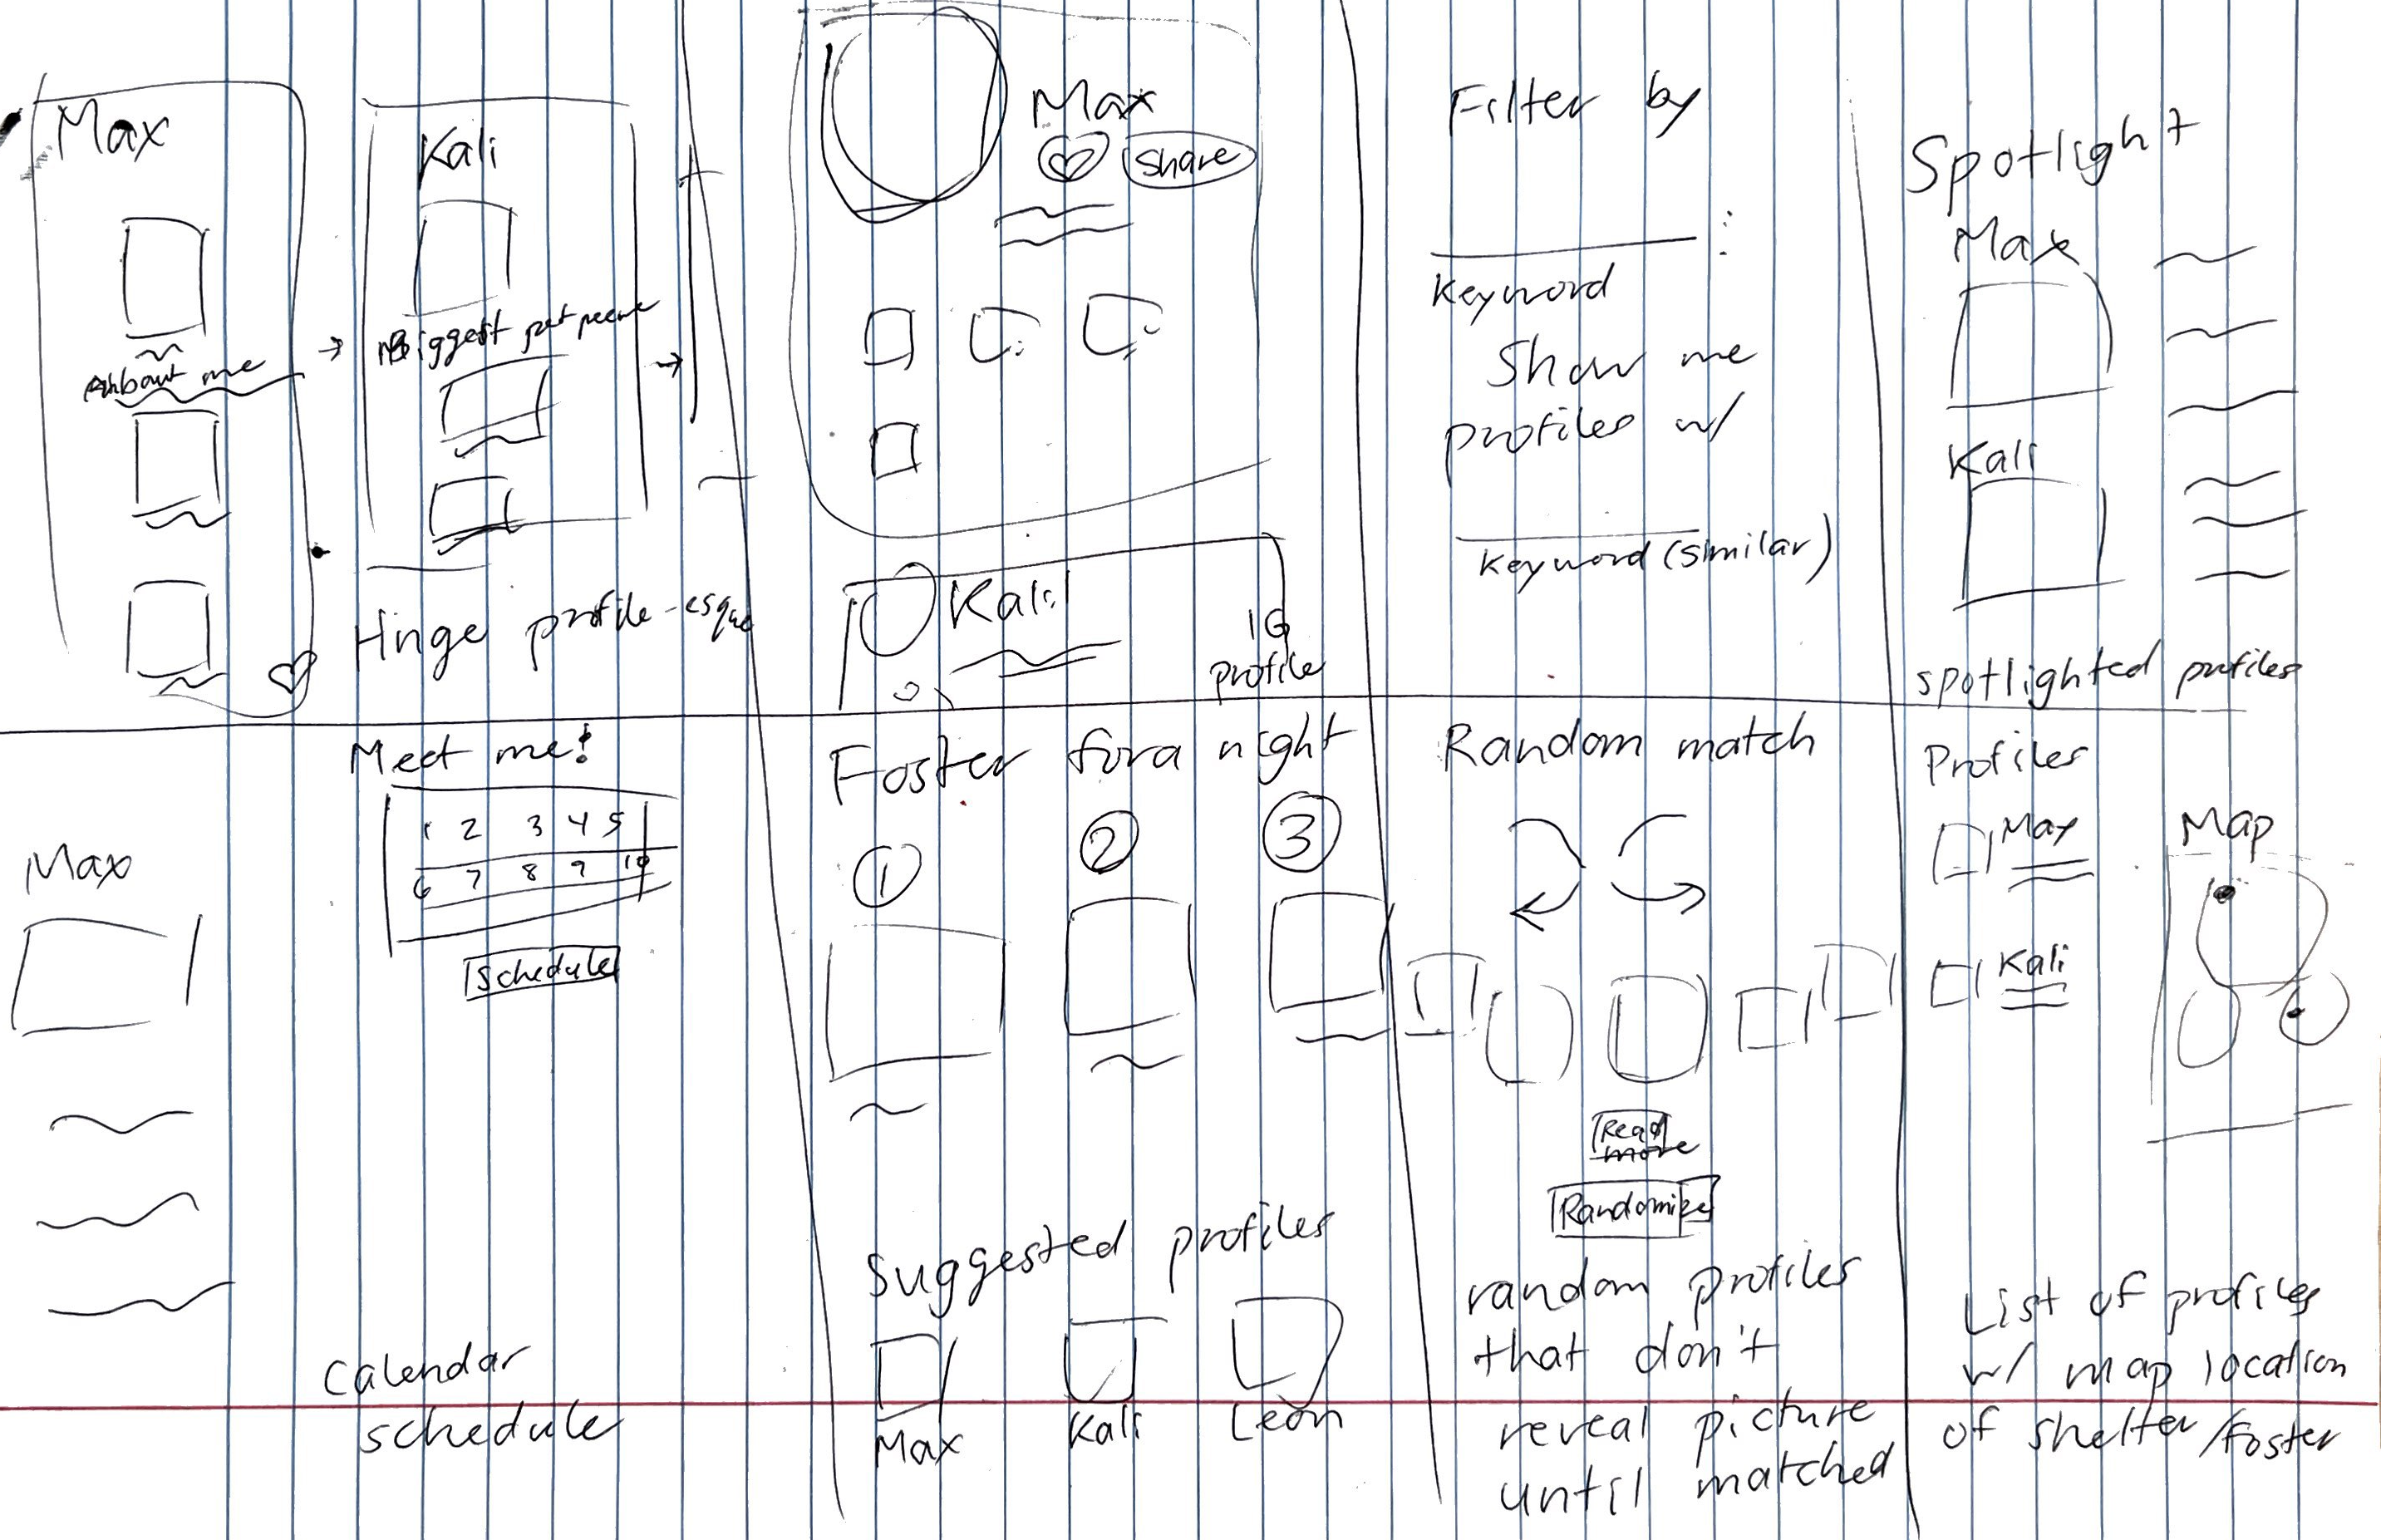 Max
About me
Kali
Biggest pet peeve
Hinge profile-esque
Max
Share
Kali
IG
profile
Filter by
keyword
Show me
profiles w/
keyword (similar)
Spotlight
Max
Kali
spotlighted profiles
Max
Meet me!
1 2 3 4 5
6 7 8 9 10
Schedule
Calendar
schedule
Foster for a night
1
2
3
Suggested profiles
Max
Kali
Leon
Random match
Read
more
Randomize
random profiles
that don't
reveal picture
until matched
Profiles
Max
Kali
Map
List of profiles
w/ map location
of shelter/foster